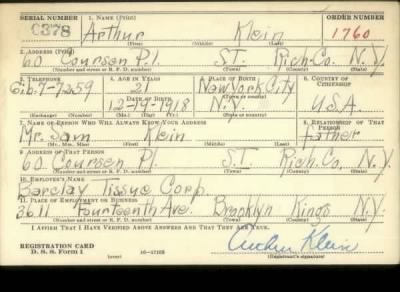 SERIAL NUMBER 1. NAME (Print) ORDER NUMBER
C378 Arthur Klein 1760
(First) (Middle) (Last)
2. ADDRESS (Print)
60 Coursen Pl. S.I. Rich. Co. N.Y.
(Number and street or R. F. D. number) (Town) (County) (State)
3. TELEPHONE 4. AGE IN YEARS 5. PLACE OF BIRTH 6. COUNTRY OF CITIZENSHIP
Gib. 7-7259 21 New York City
DATE OF BIRTH (Town or county)
12-14-1918 N.Y. U.S.A.
(Exchange) (Number) (Mo.) (Day) (Yr.) (State or country)
7. NAME OF PERSON WHO WILL ALWAYS KNOW YOUR ADDRESS 8. RELATIONSHIP OF THAT PERSON
Mr. Sam Klein Father
(Mr., Mrs., Miss) (First) (Middle) (Last)
9. ADDRESS OF THAT PERSON
60 Coursen Pl. S.I. Rich. Co. N.Y.
(Number and street or R. F. D. number) (Town) (County) (State)
10. EMPLOYER'S NAME
Barclay Tissue Corp.
11. PLACE OF EMPLOYMENT OR BUSINESS
3611 Fourteenth Ave. Brooklyn Kings N.Y.
(Number and street or R. F. D. number) (Town) (County) (State)
I AFFIRM THAT I HAVE VERIFIED ABOVE ANSWERS AND THAT THEY ARE TRUE.
REGISTRATION CARD Arthur Klein
D. S. S. Form 1 (over) 16-17105 (Registrant's signature)